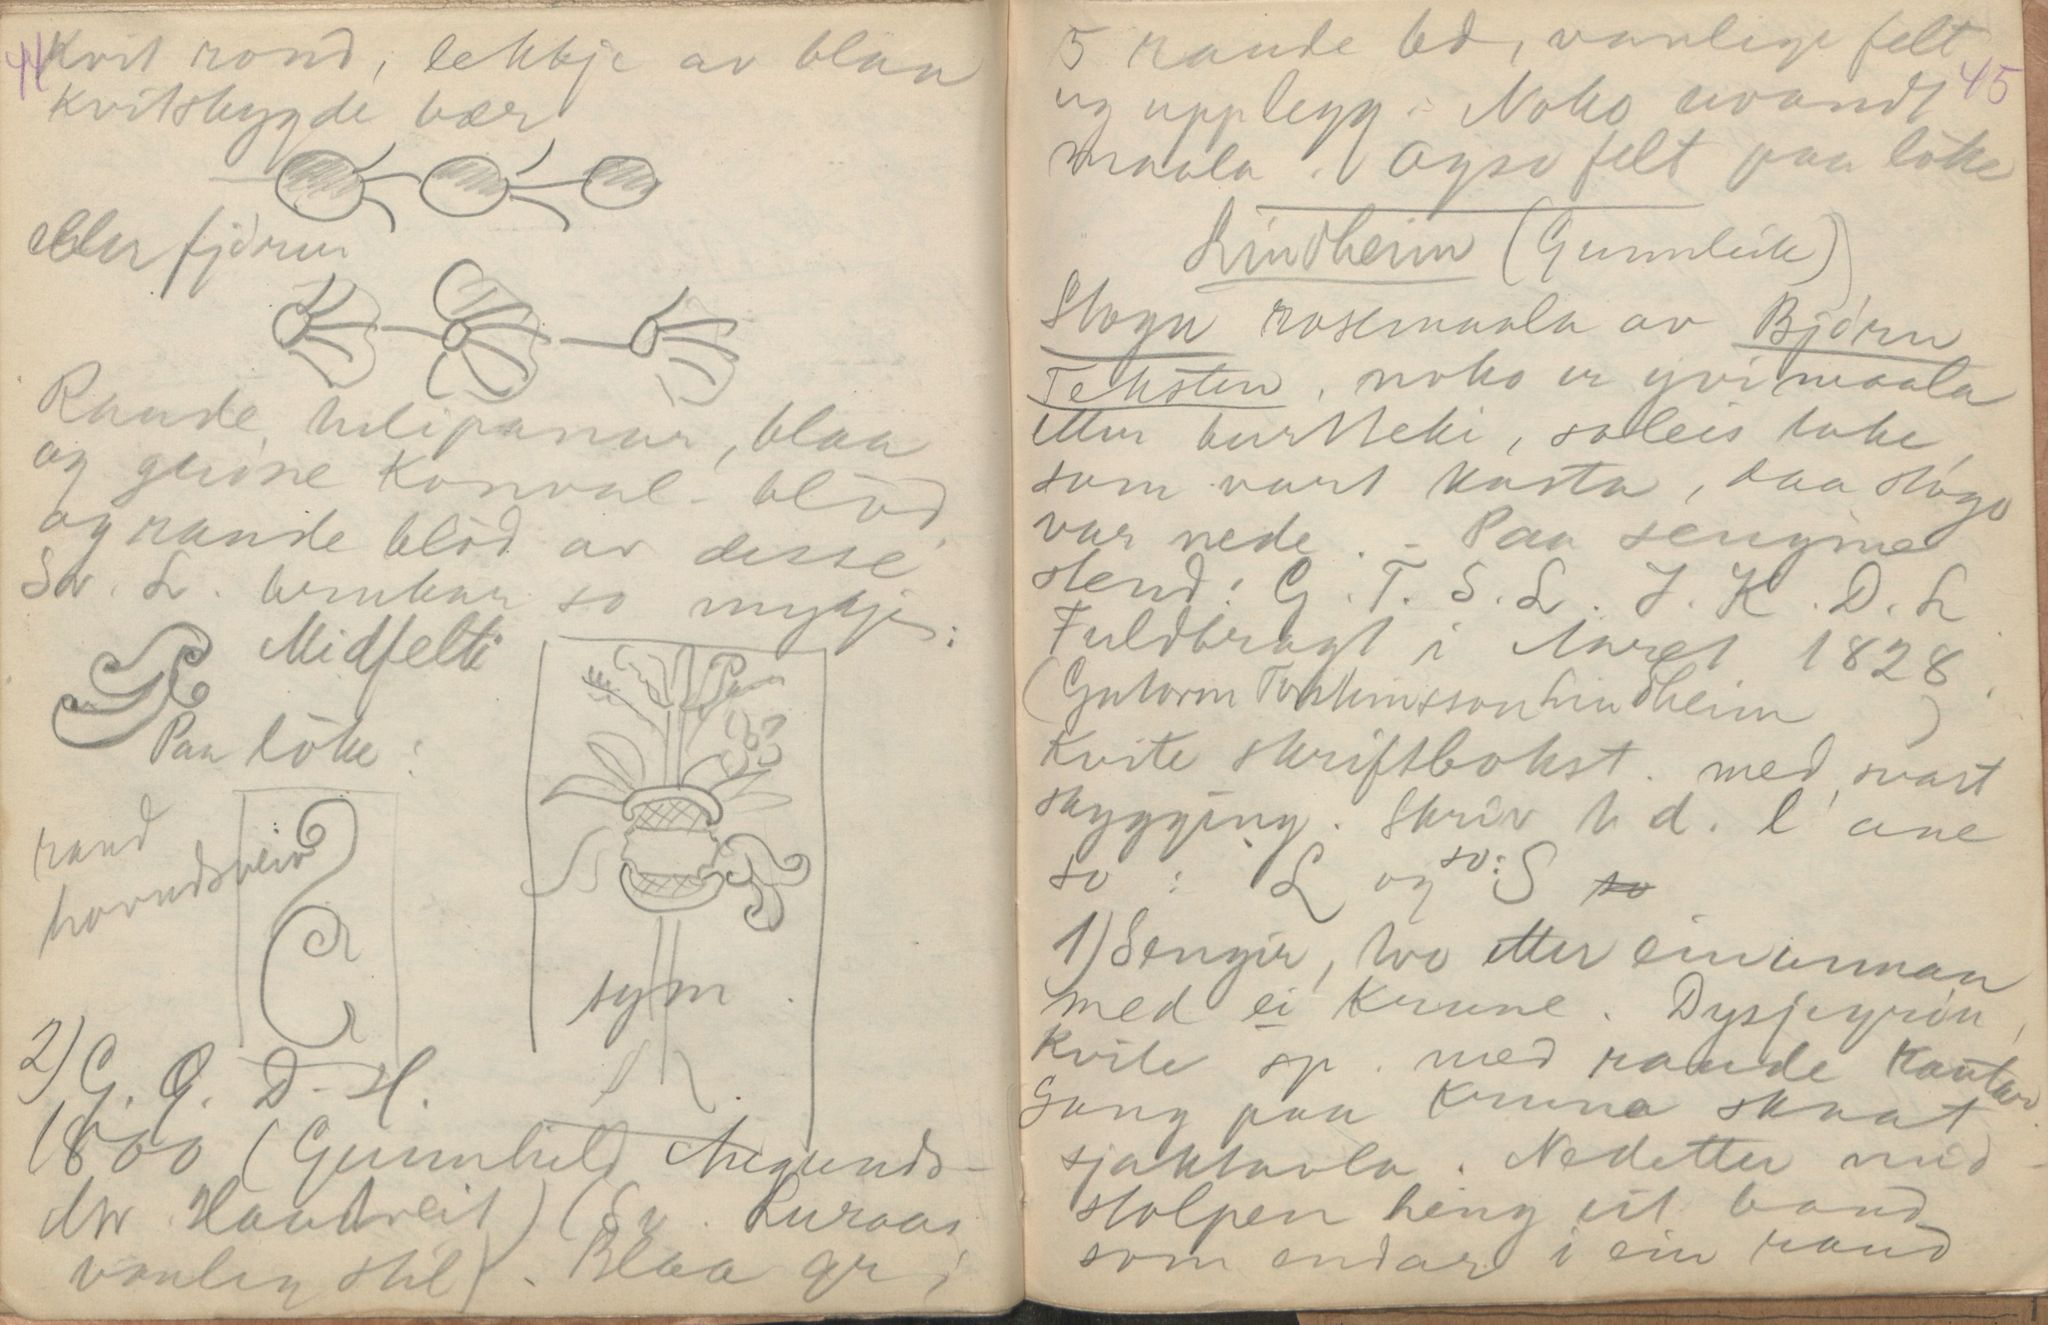 44
Kvit rond, lekkje av blaa
kvitskygde bær
eller fjörur
Raude tulipanar, blaa
og gröne Konval-blöd
og raude blöd av desse
Sv. L. brukar so mykje:
Midfelti
Paa löke:
raud
hovudsveiv
sym
2) G. A. D. H.
1800 (Gunnhild Augunds-
dtr Haatveit) (Sv. Luraas
vanleg stil). Blaa gr,
45
5 raude bd, vanlege felt
og upplegg. Noko uvandt
maala. Ogso felt paa löke
Lindheim (Gunnleik)
Stogu rosemaala av Björn
Teksten, noko er yvimaala
etter burtteki, soleis take,
som vart kasta, daa stógo
var nede. - Paa sengine
stend: G. T. S. L. J. K. D. L
Fuldbragt i Aaret 1828.
(Gutorm Tarkimsson Lindheim )
Kvite skriftbokst. med svart
skygging. Skriv t. d. l eine
so: L og so: S so
1) Sengir, tvo etter einannan
med ei Krune. Dysjegrön,
Kvite sp. med raude Kantar.
Gang paa Kruna skaat
sjaktavla. Nedetter mid-
stolpen heng eit band
som endar i ein raud